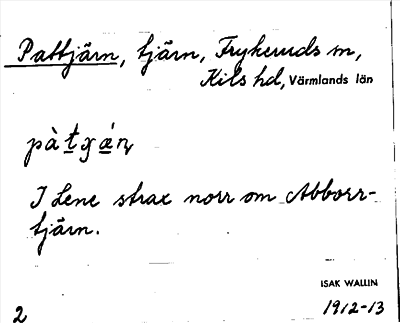 Pattjärn, tjärn, Frykeruds sn,
Kils hd, Värmlands län
I Lene strax norr om Abborr-
tjärn.
ISAK WALLIN
2
1912-13